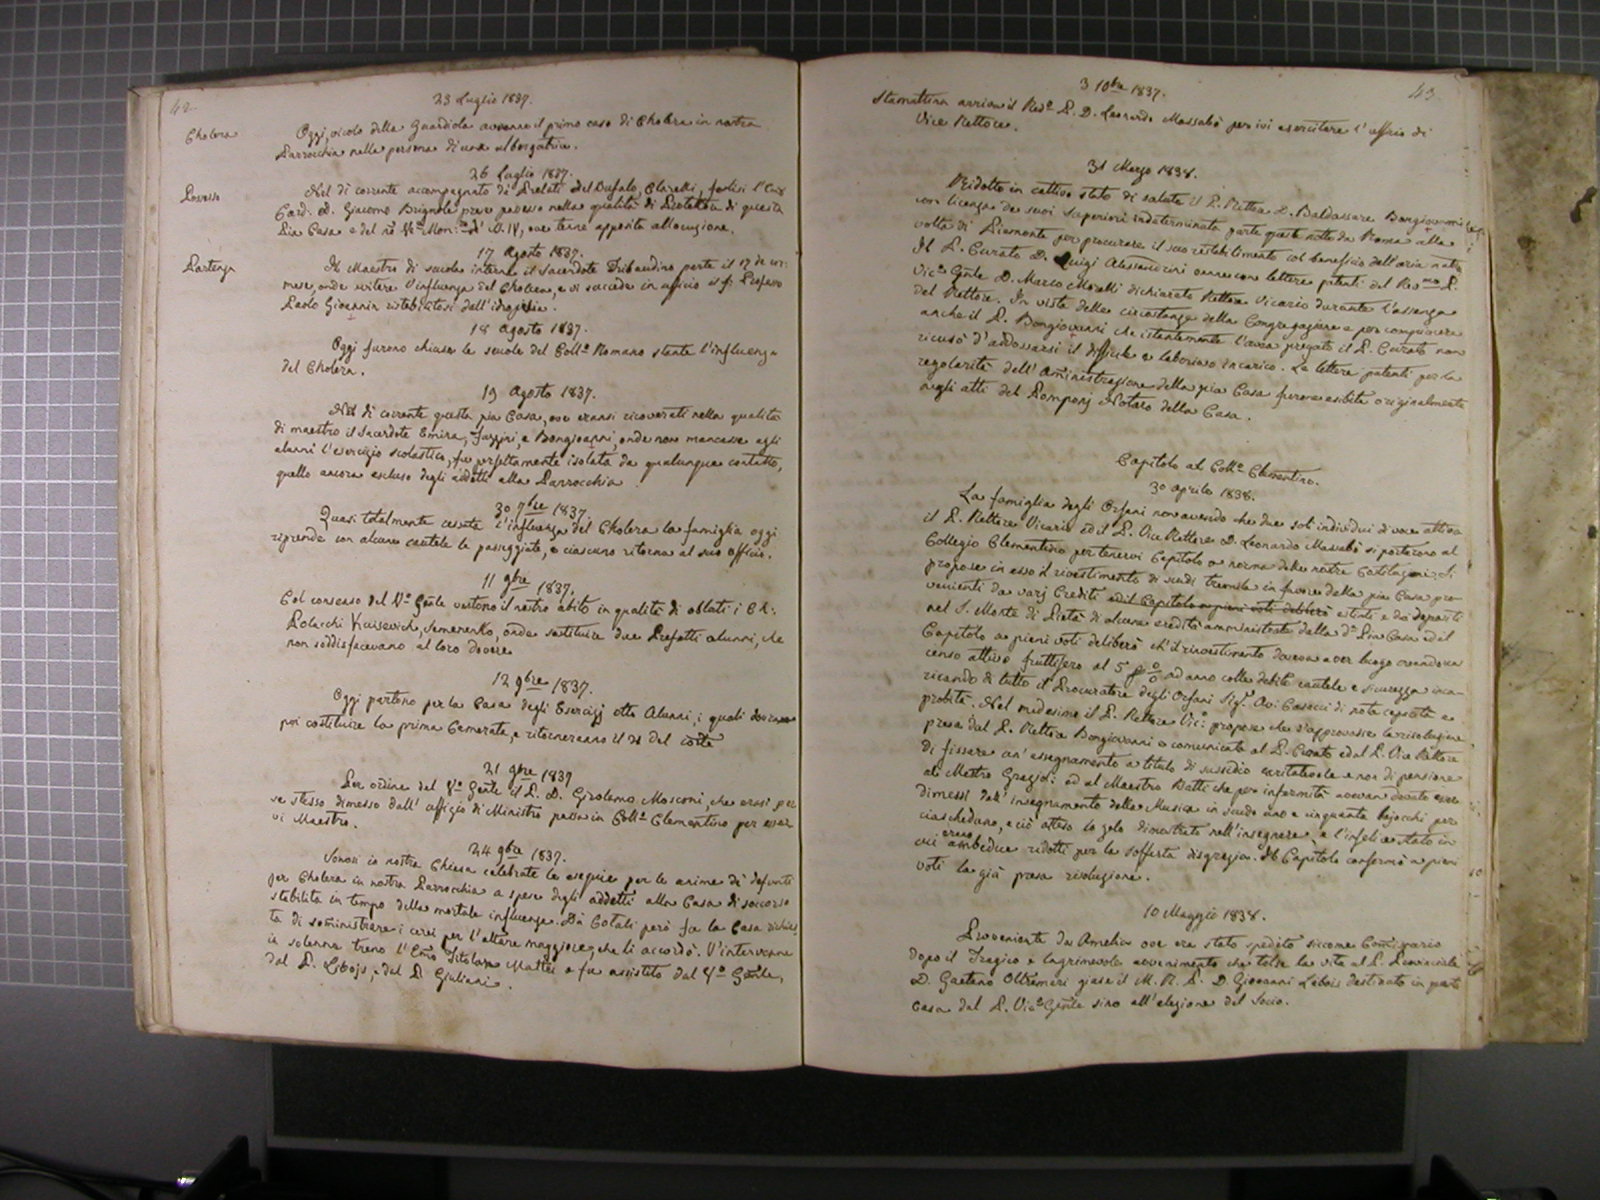 42.
23 Luglio 1837.
Cholera
Oggi, vicolo della Guardiola avvenne il primo caso di Cholera in nostra
Parrocchia nella persona di una albergatrice.
26 Luglio 1837.
Possesso
Nel dì corrente accompagnato dì Prelati Del Bufalo, Clarelli,
Card. D. Giacomo Brignole prese possesso nella qualità di Protettore di questa
Pia Casa e del
ove tenne apposita allocuzione.
17 Agosto 1837.
Partenza
Il Maestro di scuola interno il Sacerdote Tribaudino parte il 17 de cor:
mese, onde evitare l'influenza del Cholera, e vi succede in ufficio il
Paolo Gioannin ristabilitosi dall'idropisia.
18 Agosto 1837.
Oggi furono chiuse le scuole del Coll.o Romano stante l'influenza
del Cholera.
19 Agosto 1837.
Nel dì corrente questa pia Casa, ove eransi ricoverati nella qualità
di maestro il Sacerdote Emira, e Bongioanni, onde non mancasse agli
alunni l'esercizio scolastico, fu perfettamente isolata da qualunque contatto,
quello ancora escluso degli addetti alla Parrocchia.
30 7bre 1837.
Quasi totalmente cessata l'influenza del Cholera la famiglia oggi
riprende con alcune cautele le passeggiate, e ciascuno ritorna al suo officio.
11 9bre 1837.
Col consenso del V.o Gnle vestono il nostro abito in qualità di oblati i Ch:
Polacchi Kaisevich, Semenenko, onde sostituire due Prefetti alunni, che
non soddisfacevano al loro dovere.
12 9bre 1837.
Oggi partono per la Casa degli Esercizj otto Alunni, i quali dovranno
poi costituire la prima Camerata, e ritorneranno il 21 del corte
21 9bre 1837
Per ordine del V.o Gnle il P. D. Girolamo Mosconi, che erasi per
se stesso dimesso dall'uffizio di Ministro passa in Coll.o Clementino per esser
vi Maestro.
24 9bre 1837.
Sonosi in nostra Chiesa celebrate le esequie per le anime de' defunti
per Cholera in nostra Parrocchia a spese degli addetti alla Casa di soccorso
stabilita in tempo della mortale influenza. Da Cotali però fu la Casa richies
ta di somministrare i cerei per l'altare maggiore, che li accordò. V'intervenne
in solenne treno l'Emo Titolare Mattei e fu assistito dal V.o Gnle,
dal P. Libojs, e dal P. Giuliani.
43.
3 10bre 1837.
Stamattina arriva il Red.o P. D. Leonardo Massabò per ivi esercitare l'offizio di
Vice Rettore.
31 Marzo 1838.
Ridotto in cattivo stato di salute il P. Rettore D. Baldassare Bongiovanni
con licenza de suoi Superiori indeterminata parte questa notte da Roma alla
volta di Piemonte per procurare il suo ristabilimento col beneficio dell'aria natia
Il P. Curato D. Luigi Alessandrini venne con lettere patenti del Rev.mo P.
Vic.o Gnle D. Marco Morelli dichiarato Rettore Vicario durante l'assenza
del Rettore. In vista delle circostanze della Congregazione e per compiacere
anche il P. Bongiovanni che istantemente l'avea pregato il P. Curato non
ricusò d'addossarsi il difficile e laborioso incarico. Le lettere patenti per la
regolarità dell'Aministrazione della pia Casa furono esibite originalmente
negli atti del Pomponj Notaro della Casa.
Capitolo al Coll.o Clementino.
30 aprile 1838.
La famiglia degli Orfani non avendo che due soli individui di voce attiva
il P. Rettore Vicario ed il P. Vice Rettore D. Leonardo Massabò si portarono al
Collegio Clementino per tenervi Capitolo a norma delle nostre Costituzioni. Si
propose in esso il rivestimento di scudi tremila in favore della pia Casa pro-
venienti da varj Crediti ed il Capitolo a pieni voti deliberò estinti e da depositi
nel S. Monte di Pietà di alcune eredità amministrate dalla d.a Pia Casa ed il
Capitolo a pieni voti deliberò ch'il rinvestimento dovesse aver luogo creandosi un
censo attivo fruttifero al 5 p% ad anno colle debite cautele e sicurezze inca-
ricando di tutto il Procuratore degli Orfani Sig.r Av. Casacci di nota capacità e
probità. Nel medesimo il P. Rettore Vic: propose che s'approvasse la risoluzione
presa dal P. Rettore Bongiovanni e comunicata al P. Curato ed al P. Vice Rettore
di fissare un'assegnamento a titolo di sussidio caritatevole e non di pensione
al Mestro Grazioli ed al Maestro Ratti che per infermità aveano dovuto esser
dimessi dall'insegnamento della Musica in scudo uno e cinquanta bajocchi per
ciaschedano, e ciò atteso lo zelo dimostrato nell'insegnare, e l'infelice stato in
cui erano ambedue ridotti per la sofferta disgrazia. Il Capitolo confermò a pieni
voti la già presa risoluzione.
10 Maggio 1838.
Proveniente da Amelia ove era stato spedito siccome Comissario
dopo il Tragico e lagrimevole avvenimento che tolse la vita al P. Provinciale
D. Gaetano Oltremari giunse il M. R. P. D. Giovanni Libois destinato in questa
Casa dal P. Vic.o Gnle sino all'elezione del Socio.